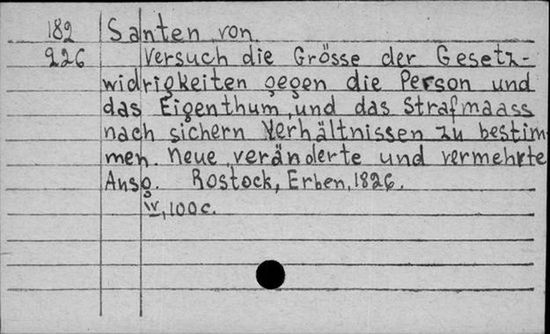 182 Santen von
226 Versuch die Grösse der Gesetz-
widrigkeiten gegen die Person und
das Eigenthum, und das Strafmaass
nach sichern Verhältnissen zu bestim
men. Neue veränderte und vermehrte
Ansg. Rostock, Erben, 1826.
IV, 100 c.